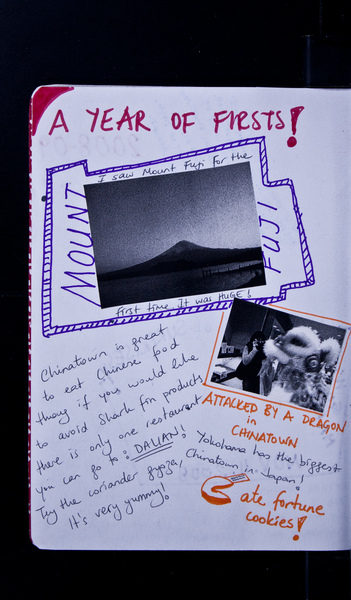 A YEAR OF FIRSTS!
I saw Mount Fuji for the
MOUNT
FUJI
first time. It was HUGE!
Chinatown is great
to eat Chinese food
thoug if you would like
to avoid Shark fin products
there is only one restaurant
you can go to: DALIAN!
Try the coriander gyoza,
It's very yummy!
ATTACKED BY A DRAGON
in
CHINATOWN
Yokohama has the biggest
Chinatown in Japan!
ate fortune
cookies!